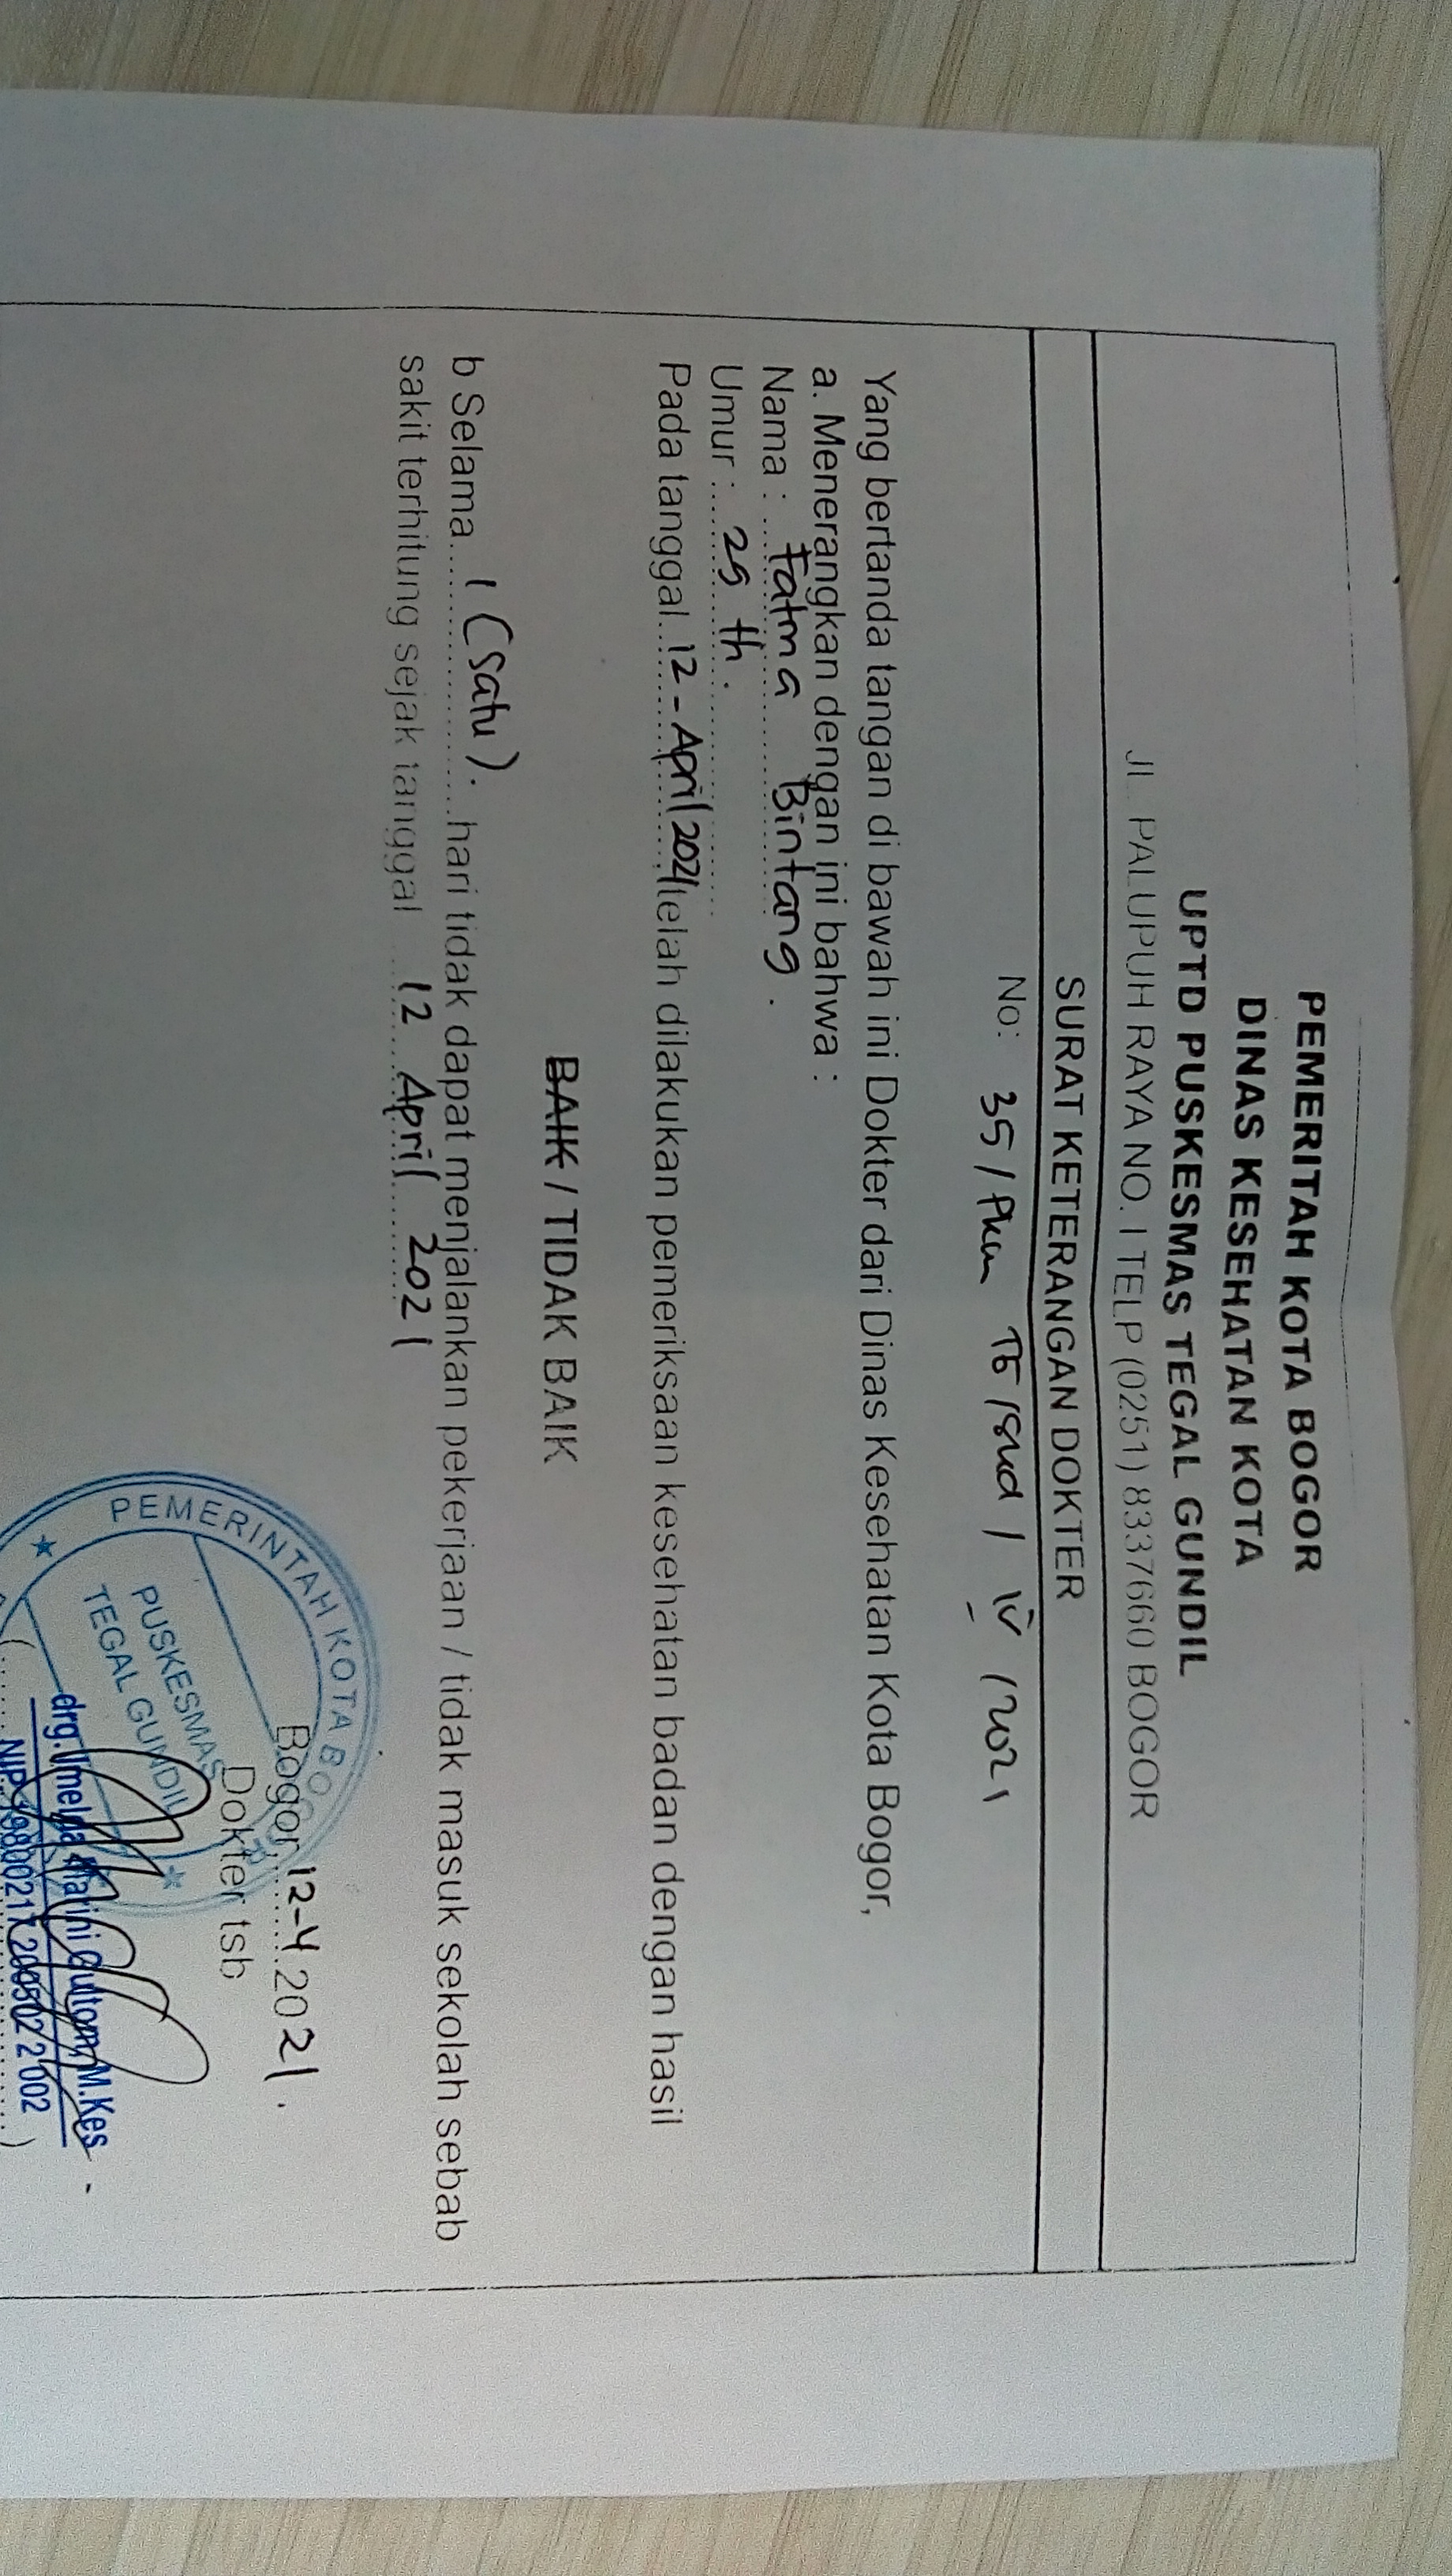 PEMERITAH KOTA BOGOR
DINAS KESEHATAN KOTA
UPTD PUSKESMAS TEGAL GUNDIL
JL. PALUPUH RAYA NO. 1 TELP (0251) 8337660 BOGOR
SURAT KETERANGAN DOKTER
No: 35 / Pkm TG / SKD / IV / 2021
Yang bertanda tangan di bawah ini Dokter dari Dinas Kesehatan Kota Bogor,
a. Menerangkan dengan ini bahwa :
Nama : Fatma Bintang.
Umur : 25 th.
Pada tanggal 12-April 2021 telah dilakukan pemeriksaan kesehatan badan dengan hasil
BAIK / TIDAK BAIK
b Selama 1 (satu). hari tidak dapat menjalankan pekerjaan / tidak masuk sekolah sebab
sakit terhitung sejak tanggal 12 April 2021
Bogor, 12-4 2021.
Dokter tsb
PEMERINTAH KOTA BO
PUSKESMAS
TEGAL GUNDIL
drg. Imelda Marini Gultom, M.Kes
NIP 19800217 200502 2 002